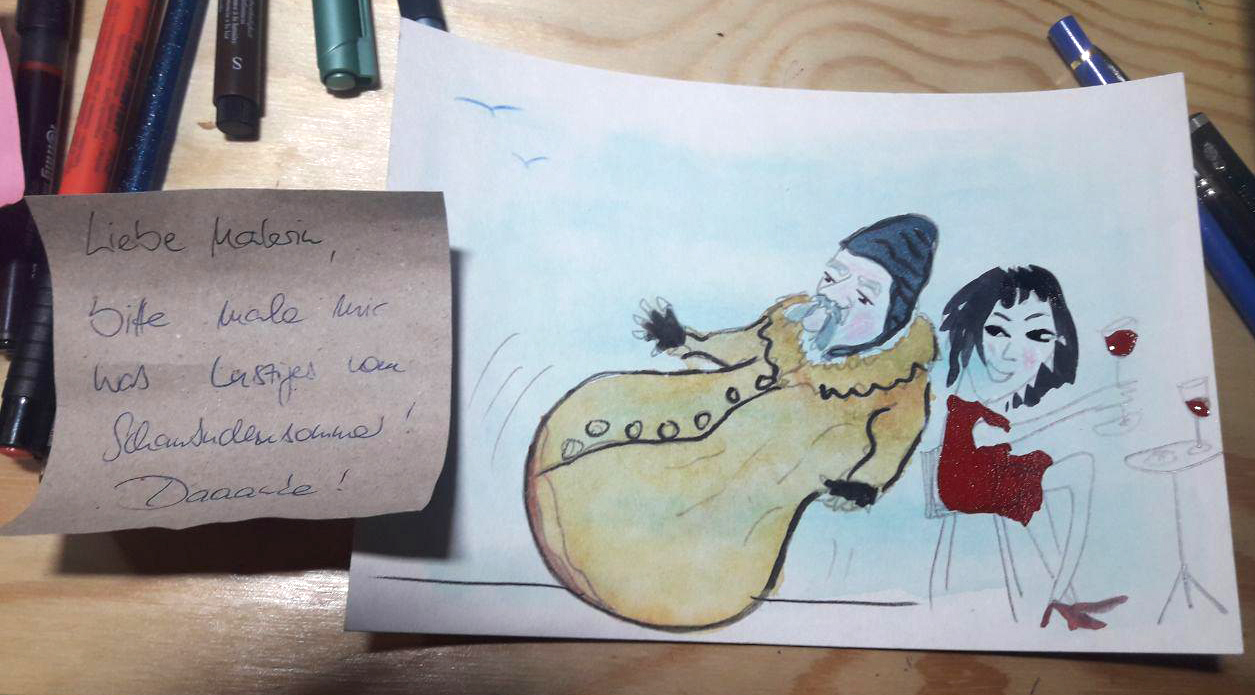 Liebe Malerin,
bitte male mir
was lustiges vom
!
Daaanke!
S